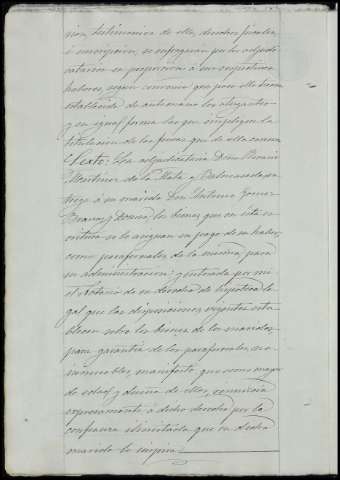 cion, testimonios de ella, derechos fiscales
é inscripcion, se sufraguen por los adjudi-
catarios en proporcion á sus respectivos
haberes, segun convenio que para ello tienen
establecido de antemano los otorgantes
y en igual forma los que implique la
titulacion de las fincas que de ella carecen.
Sexto: La adjudicataria Doña
Martinez de la Mata y en-
trega á su marido Don Antonio Gomez
los bienes que en esta es-
critura se le asignan en pago de su haber,
como parafernales de la misma, para
su administracion; y enterada por mi
el Notario de su derecho de hipoteca le-
gal que las disposiciones vigentes esta-
blecen sobre los bienes de los maridos
para garantia de los parafernales, no
inmuebles, manifiesta que como mayor
de edad y dueña de ellos, renuncia
expresamente á dicho derecho por la
confianza ilimitada que su dicho
marido le inspira.